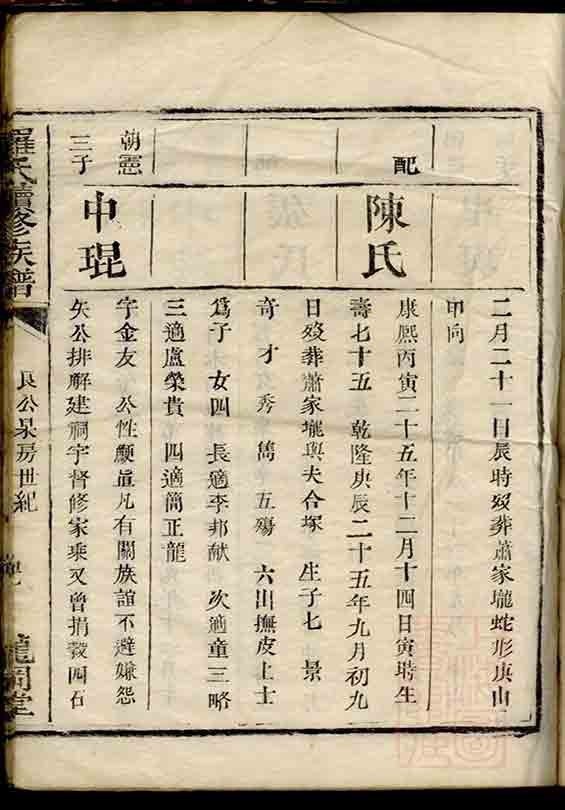 二月二十一日辰時歿葬蕭家壠蛇形庚山
甲向
配
陳氏
康熙丙寅二十五年十二月十四日寅時生
壽七十五 乾隆庚辰二十五年九月初九
日歿葬蕭家壠與夫合塚 生子七 景
奇 才 秀 雋 五殤 六出撫皮上士
爲子 女四 長適李邦献 次適童三略
三適盧榮貴 四適簡正龍
朝憲
三子
中琨
字金友 公性顛眞凡有關族誼不避嫌怨
矢公排解建祠宇督修家乘又曾捐穀四石
羅氏續修族譜
良公杲房世紀